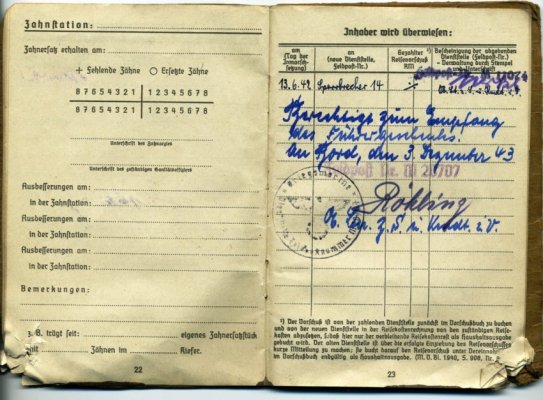 Zahnstation:
Zahnersatz erhalten am:
+ Fehlende Zähne ○ Ersetzte Zähne
8 7 6 5 4 3 2 1 | 1 2 3 4 5 6 7 8
8 7 6 5 4 3 2 1 | 1 2 3 4 5 6 7 8
Unterschrift des Zahnarztes
Unterschrift des zugehörigen Sanitätsoffiziers
Ausbesserungen am:
in der Zahnstation:
Ausbesserungen am:
in der Zahnstation:
Ausbesserungen am:
in der Zahnstation:
Bemerkungen:
z. B. trägt seit: eigenes Zahnersatzstück
mit Zähnen im Kiefer.
22
Inhaber wird überwiesen:
am (Tag der Inmarschsetzung)
an (neue Dienststelle, Feldpost-Nr.)
Gezahlter Reisevorschuß RM
¹) Bescheinigung der abgebenden Dienststelle (Feldpost-Nr.) - Verwaltung durch Stempel
13.6.42 Sperrbrecher 14
Berechtigt zum Empfang
des Führergeschenks.
An Bord, den 3. Dezember 43
Nr. M 20707
Kriegsmarine
Röhling
z. S. u. Kmdt. i. V.
¹) Der Vorschuß ist von der zahlenden Dienststelle zunächst im Vorschußbuch zu buchen
und von der neuen Dienststelle in der Reisekostenrechnung von den zuständigen Reise-
kosten abzusetzen, so daß hier nur der verbleibende Reisekostenrest als Haushaltsausgabe
gebucht wird. Der alten Dienststelle ist über die erfolgte Einziehung des Reisevorschusses
kurze Mitteilung zu machen; sie bucht darauf den Reisevorschuß unter Vereinnahmung
im Vorschußbuch endgültig als Haushaltsausgabe. (M. D. Bl. 1940, S. 908, Nr.
23